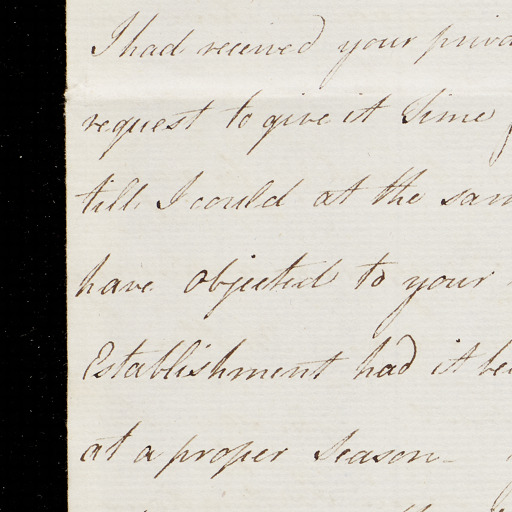 I had received your priva
request to give it Time
till I could at the sam
have objected to your
Establishment had it be
at a proper Season